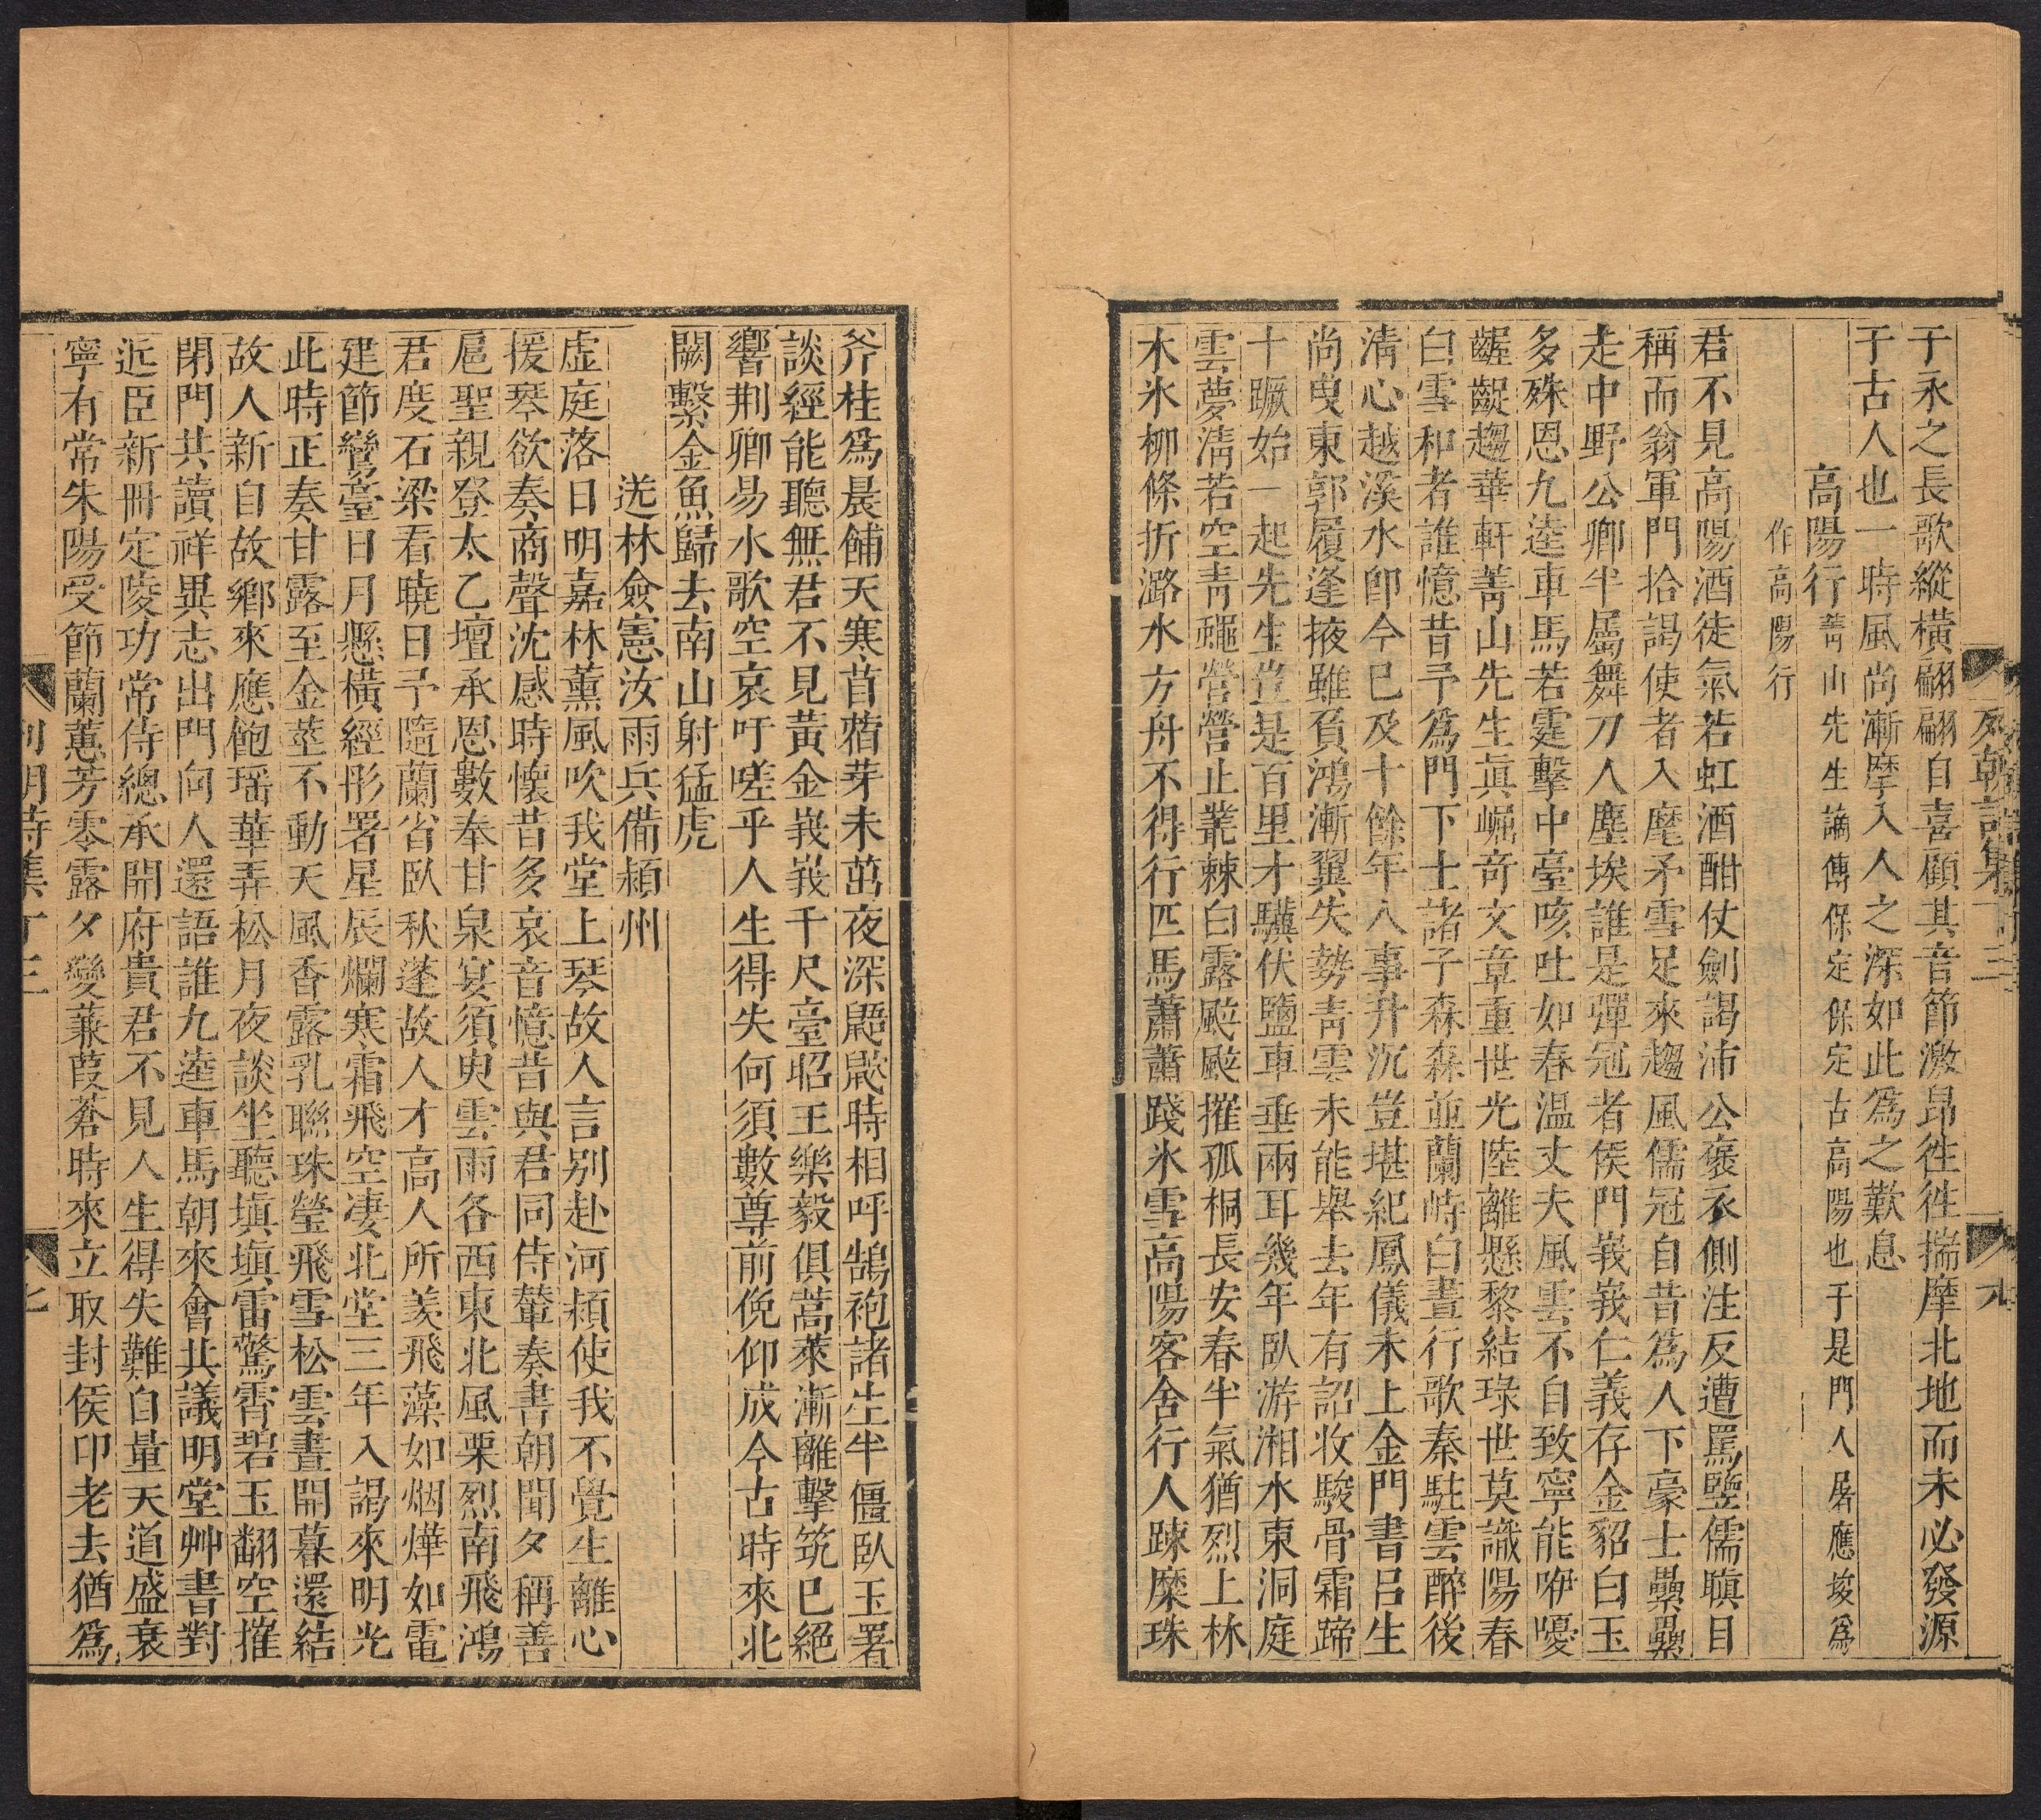 列朝詩集丁三
九
于永之長歌縱橫翩翩自喜顧其音節激昂徃徃揣摩北地而未必發源
于古人也一時風尚漸摩入人之深如此爲之歎息
高陽行菁山先生謫傳保定保定古高陽也于是門人屠應埈爲
作高陽行
君不見高陽酒徒氣若虹酒酣仗劍謁沛公褒衣側注反遭罵豎儒瞋目
稱而翁軍門拾謁使者入麾矛雪足來趨風儒冠自昔爲人下豪士㬥㬥
走中野公卿半屬舞刀人塵埃誰是彈冠者侯門峩峩仁義存金貂白玉
多殊恩九逵車馬若霆擊中臺咳吐如春温丈夫風雲不自致寧能咿嚘
齷齪趨華軒菁山先生眞崛奇文章重世光陸離懸黎結琭世莫識陽春
白雪和者誰憶昔予爲門下士諸子森森並蘭峙白晝行歌秦駐雲醉後
淸心越溪水卽今已及十餘年人事升沉豈堪紀鳳儀未上金門書呂生
尚曳東郭履逢掖雖負鴻漸翼失勢靑雲未能舉去年有詔收駿骨霜蹄
十蹶始一起先生豈是百里才驥伏鹽車垂兩耳幾年臥游湘水東洞庭
雲夢淸若空靑蠅營營止叢棘白露飈飈摧孤桐長安春半氣猶烈上林
木氷柳條折潞水方舟不得行匹馬蕭蕭踐氷雪高陽客舍行人踈糜珠
斧桂爲晨餔天寒苜蓿芽未茁夜深鼯鼣時相呼鵠袍諸生半偃臥玉署
談經能聽無君不見黃金峩峩千尺臺昭王樂毅俱蒿萊漸離擊筑已絕
響荆卿易水歌空哀吁嗟乎人生得失何須數尊前俛仰成今古時來北
闕繫金魚歸去南山射猛虎
送林僉憲汝雨兵備潁州
虛庭落日明嘉林薰風吹我堂上琴故人言别赴河潁使我不覺生離心
援琴欲奏商聲沈感時懷昔多哀音憶昔與君同侍輦奏書朝聞夕稱善
扈聖親登太乙壇承恩數奉甘泉宴須臾雲雨各西東北風栗烈南飛鴻
君度石梁看曉日予隨蘭省臥秋蓬故人才高人所羨飛藻如烟燁如電
建節鸞臺日月懸橫經彤署星辰爛寒霜飛空凄北堂三年入謁來明光
此時正奏甘露至金莖不動天風香露乳聯珠瑩飛雪松雲晝開暮還結
故人新自故鄉來應飽瑶華弄松月夜談坐聽塡塡雷驚霄碧玉翻空摧
閉門共讀祥異志出門向人還語誰九逵車馬朝來會共議明堂艸書對
近臣新冊定陵功常侍總承開府貴君不見人生得失難自量天道盛衰
寧有常朱陽受節蘭蕙芳零露夕變蒹葭蒼時來立取封侯印老去猶爲
列朝詩集丁三
七